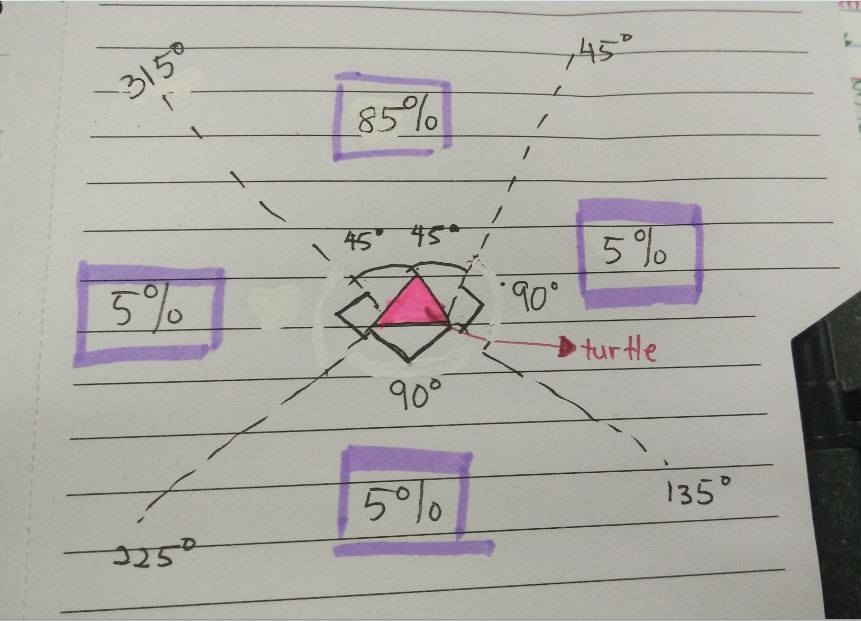 315°
45°
85%
45° 45°
5%
5%
90°
turtle
90°
135°
5%
225°